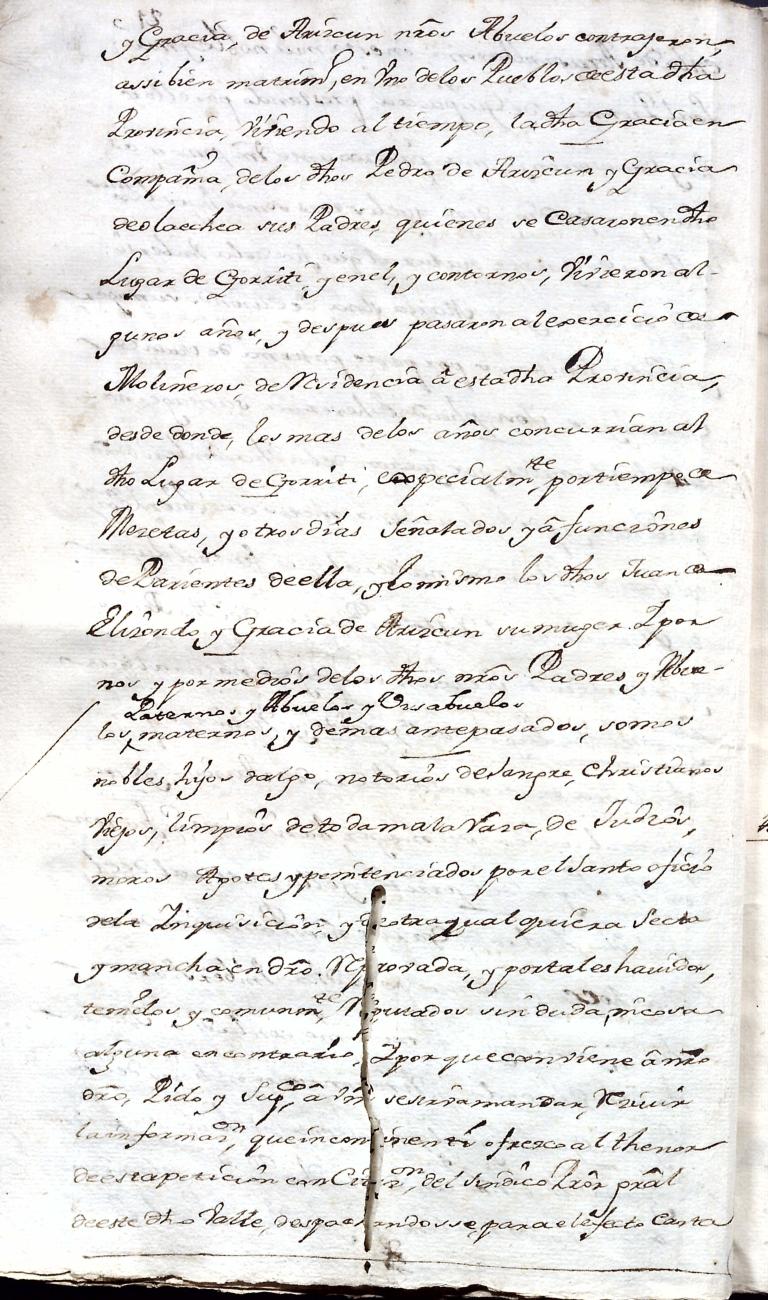 y Gracia, de Arizcun nrōs Abuelos contrajeron,
assi bien matrim.º, en Vno delos Pueblos de esta dha
Provincia, Viviendo al tiempo, la dha Gracia en
Compañia, delos dhos Pedro de Arizcun y Gracia
de olaechea sus Padres, quienes se Casaron en dho
Lugar de Gorriti, y enel, y contornos, Vivieron al-
gunos años, y despues pasaron al exercicio de
Molineros, de Residencia â esta dha Provincia,
desde donde, los mas delos años concurrian al
dho Lugar de Gorriti, especialmte, por tiempo de
Mezetas, y otros dias señalados y â funciones
de Parientes de ella, y lo mismo los dhos Juan de
Elizondo y Gracia de Arizcun su muger. Y por
nos y por medios delos dhos nrōs Padres y Abue-
Paternos y Abuelos y Visabuelos
los, maternos, y demas antepasados, somos
nobles, hijos dalgo, notorios de sangre, Christianos
Viejos, limpios de toda mala Raza, de Judios,
moros Agotes y penitenciados por el Santo oficio
dela Inquisicion, y de otra qual quiera Secta
y mancha en drō. Reprovada, y por tales havidos,
tenidos y comunmte, Reputados sin duda, ni cosa
alguna en contrario, Y por que conviene â nrō
drō, Pido y Supco, â Vm se sirva mandar, Recivir
la informaon, que incontinenti ofrezco al thenor
de esta peticion con Citaon, del sindico Prōr prāl
de este dho Valle, despachandosse, para el efecto Carta